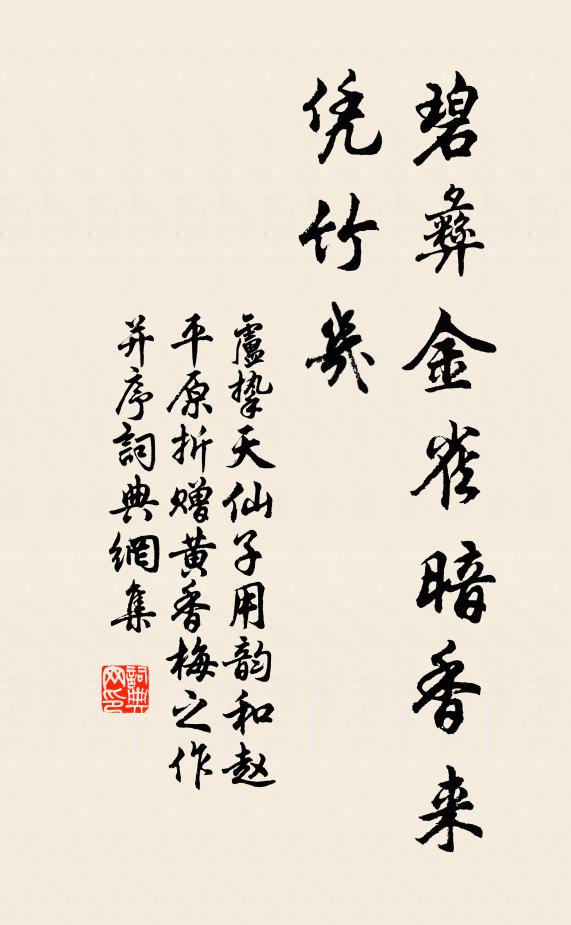 碧彝金雀暗香来
凭竹几
盧挚天仙子用韵和赵
平原折赠黄香梅之作
并序詞典網集
詞典网印